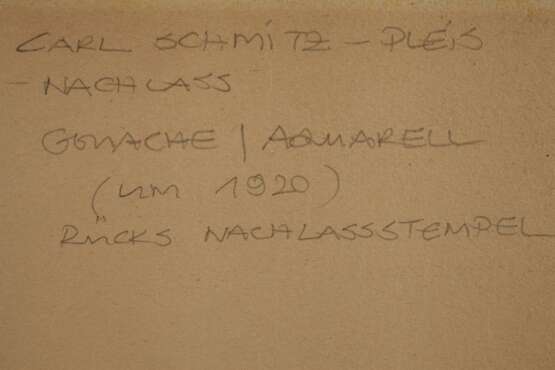 CARL SCHMITZ - PLEIS
- NACHLASS
GOUACHE | AQUARELL
(um 1920)
RÜCKS NACHLASSSTEMPEL